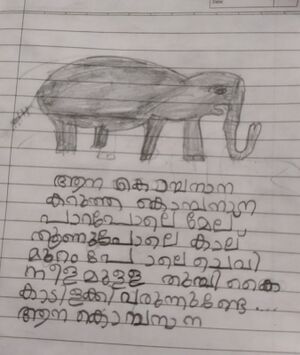 ആന കൊമ്പനാന
കറുത്ത കൊമ്പനാന
പാറപോലെ മേല്
തൂണുപോലെ കാല്
മുറം പോലെ ചെവി
നീളമുള്ള തുമ്പി കൈ
കാടിളക്കി വരുന്നുണ്ടേ ....
ആന കൊമ്പനാന